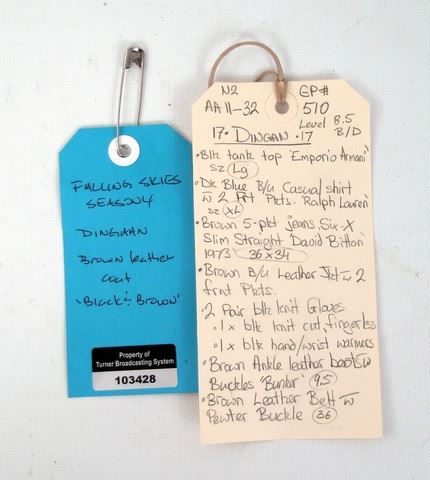 FALLING SKIES
SEASON 4
DINGHAN
Brown leather
coat
'Black & Brown'
Property of
Turner Broadcasting System
103428
N2 GP#
AA 11-32 510
Level 8.5
17 • DINGAN • 17 B/D
• Blk tank top 'Emporio Armani'
sz Lg
• Dk Blue B/U Casual shirt
w 2 Frt Pkts. 'Ralph Lauren'
sz XL
• Brown 5-pkt jeans, Six-X
Slim Straight 'David Bitton'
1973 36x34
• Brown B/U Leather Jkt w 2
frnt Pkts.
• 2 Pair blk knit Gloves
◦ 1 x blk knit cut, fingerless
◦ 1 x blk hand/wrist warmers
• Brown Ankle leather boots w
Buckles 'Bunker' 9.5
• Brown Leather Belt w
Pewter Buckle 36